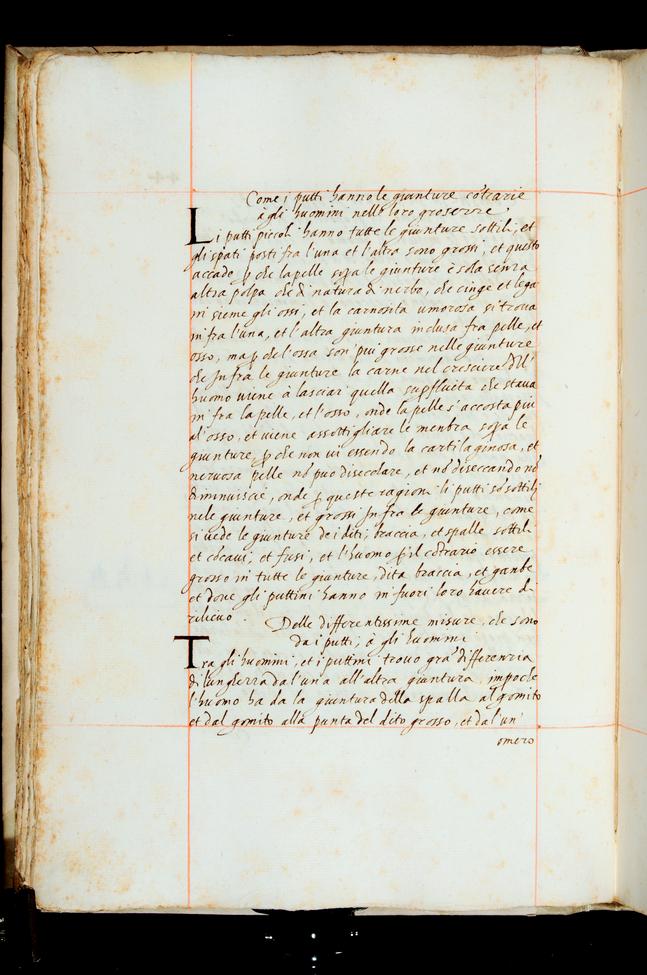 Come i putti hanno le giunture cõtrarie
à gli huomini nelle loro grosezze.
Li putti piccoli hanno tutte le giunture sottili, et
gli spatÿ posti fra l'una et l'altra sono grossi, et questo
accade ꝑ che la pelle sopra le giunture è sola senza
altra polpa che di natura di nerbo, che cinge et lega
insieme gli ossi, et la carnosità umorosa si troua
in fra l'una, et l'altra giuntura inclusa fra pelle, et
osso, ma ꝑ che l'ossa son' più grosse nelle giunture
che In fra le giunture la carne nel cresciere dell'
huomo uiene à lasciar' quella suꝑfluità che staua
in fra la pelle, et l'osso, onde la pelle s'accosta più
al'osso, et uiene assottigliare le menbra sopra le
giunture, ꝑ che non ui essendo la cartilaginosa, et
neruosa pelle nõ può disecolare, et nõ diseccando nõ
diminuiscie, onde ꝑ queste ragioni li putti sõ sottili
nele giunture, et grossi In fra le giunture, come
si uede le giunture dei diti, braccia, et spalle sottili
et cõcaui, et fusi, et l'huomo ꝑ il cõtrario essere
grosso in tutte le giunture, dita braccia, et ganbe
et doue gli puttini hanno in fuori loro hauere di
rilieuo. Delle differentissime misure, che sono
da i putti, à gli huomini
Tra gli huomini, et i puttini trouo grã differenzia
di lunghezza dal'una all'altra giuntura, impoche
l'huomo ha da la giuntura della spalla al gomito
et dal gomito alla punta del dito grosso, et dal'un'
omero